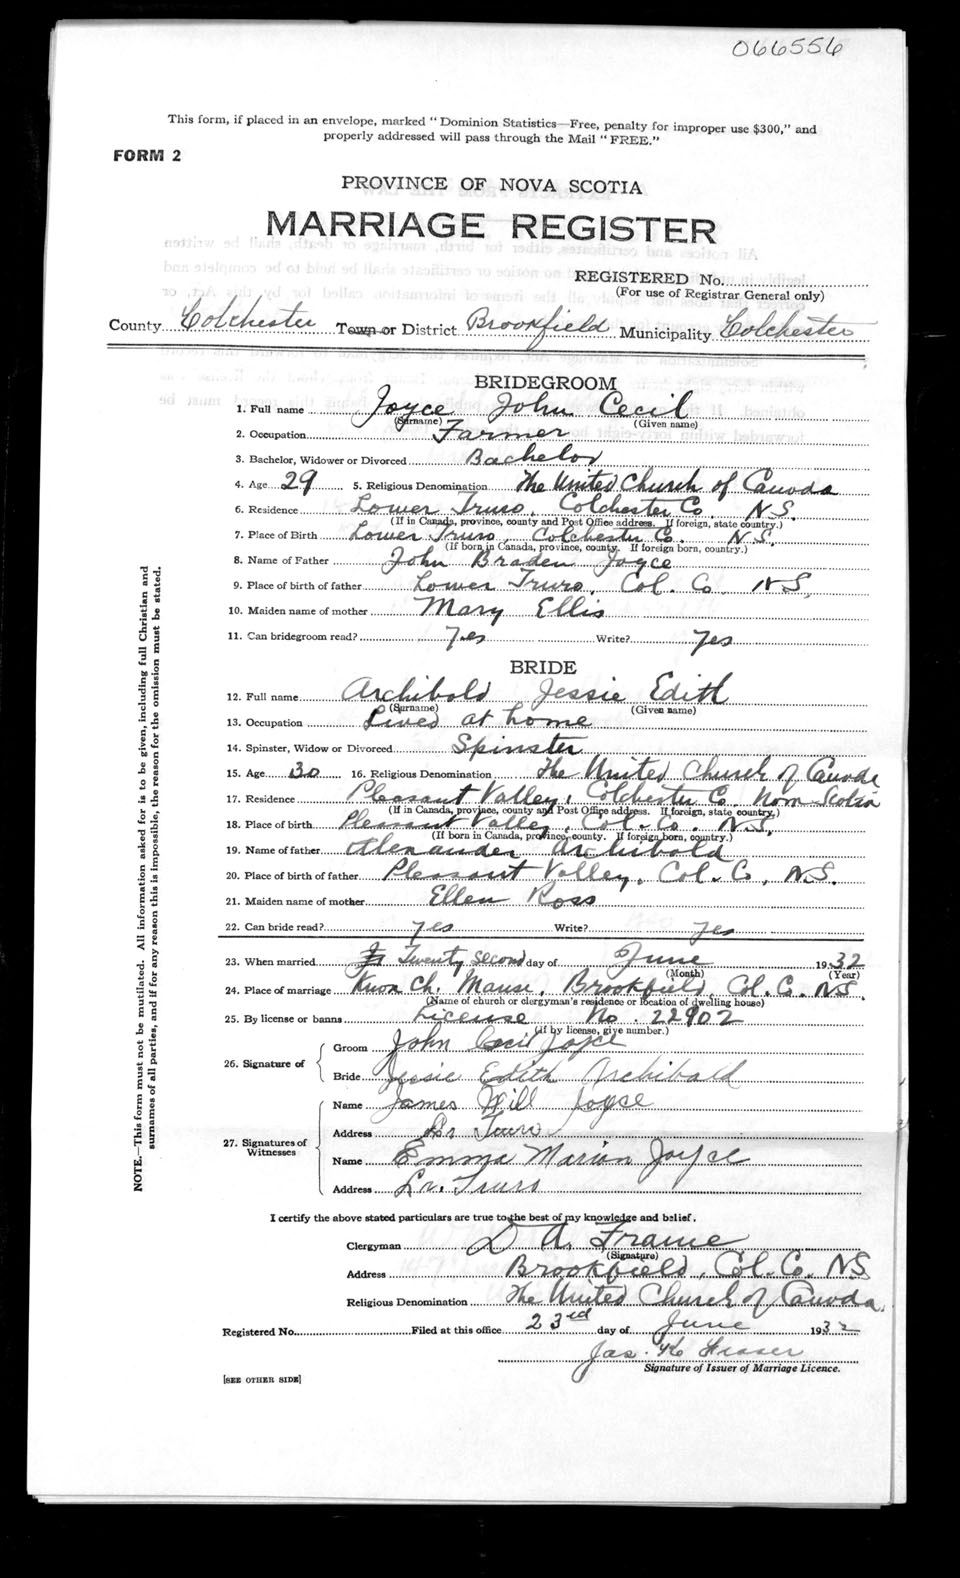 066556
This form, if placed in an envelope, marked "Dominion Statistics—Free, penalty for improper use $300," and
properly addressed will pass through the Mail "FREE."
FORM 2
PROVINCE OF NOVA SCOTIA
MARRIAGE REGISTER
REGISTERED No.
(For use of Registrar General only)
County Colchester Town or District Brookfield Municipality Colchester
BRIDEGROOM
1. Full name Joyce John Cecil
(Surname) (Given name)
2. Occupation Farmer
3. Bachelor, Widower or Divorced Bachelor
4. Age 29 5. Religious Denomination The United Church of Canada
6. Residence Lower Truro, Colchester Co. N.S.
(If in Canada, province, county and Post Office address. If foreign, state country.)
7. Place of Birth Lower Truro, Colchester Co. N.S.
(If born in Canada, province, county. If foreign born, country.)
8. Name of Father John Braden Joyce
9. Place of birth of father Lower Truro, Col. Co. N.S.
10. Maiden name of mother Mary Ellis
11. Can bridegroom read? Yes Write? Yes
BRIDE
12. Full name Archibald Jessie Edith
(Surname) (Given name)
13. Occupation Lived at home
14. Spinster, Widow or Divorced Spinster
15. Age 30 16. Religious Denomination The United Church of Canada
17. Residence Pleasant Valley, Colchester Co. Nova Scotia
(If in Canada, province, county and Post Office address. If foreign, state country.)
18. Place of birth Pleasant Valley, Col. Co. N.S.
(If born in Canada, province, county. If foreign born, country.)
19. Name of father Alexander Archibald
20. Place of birth of father Pleasant Valley, Col. Co, N.S.
21. Maiden name of mother Ellen Ross
22. Can bride read? Yes Write? Yes
23. When married Twenty second day of June 1932
(Month) (Year)
24. Place of marriage Ch. Manse, Brookfield, Col. Co. N.S.
(Name of church or clergyman's residence or location of dwelling house)
25. By license or banns License No. 22902
(If by license, give number.)
26. Signature of Groom John Cecil Joyce
Bride Jessie Edith Archibald
27. Signatures of Witnesses Name James Will Joyce
Address Lr Truro
Name Emma Marion Joyce
Address Lr. Truro
I certify the above stated particulars are true to the best of my knowledge and belief.
Clergyman D A. Frame
(Signature)
Address Brookfield, Col. Co. N.S
Religious Denomination The United Church of Canada
Registered No. Filed at this office 23rd day of June 1932
Jas. Fraser
Signature of Issuer of Marriage Licence.
[SEE OTHER SIDE]
NOTE.—This form must not be mutilated. All information asked for is to be given, including full Christian and
surnames of all parties, and if for any reason this is impossible, the reason for the omission must be stated.